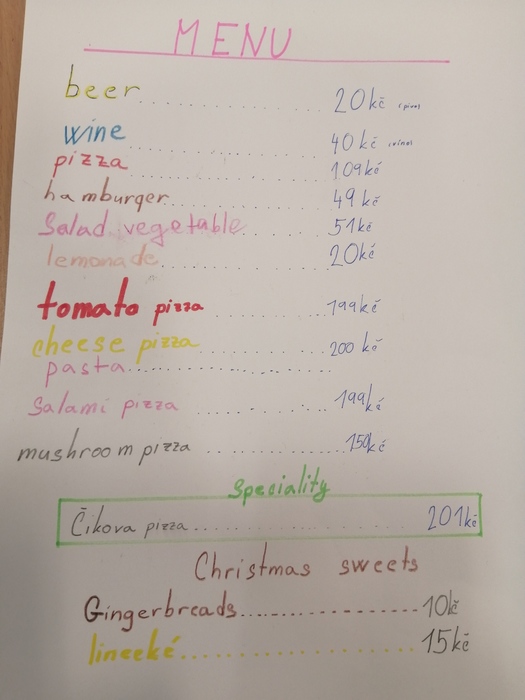 MENU
beer 20kč (pivo)
wine 40kč (víno)
pizza 109kč
hamburger 49kč
Salad vegetable 51kč
lemonade 20kč
tomato pizza 199kč
cheese pizza 200 kč
pasta
Salami pizza 199kč
mushroom pizza 150kč
Speciality
Čikova pizza 201kč
Christmas sweets
Gingerbreads 10kč
linecké 15kč